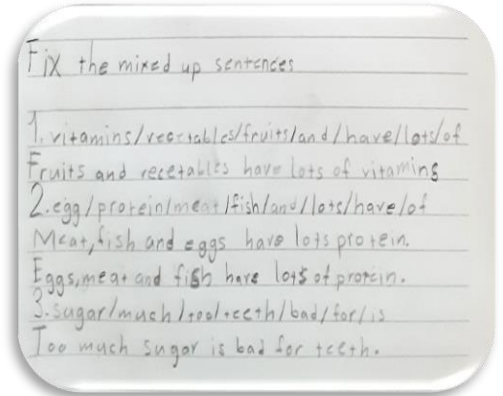 Fix the mixed up sentences
1. vitamins/vegetables/fruits/and/have/lots/of
Fruits and vecetables have lots of vitamins
2. egg/protein/meat/fish/and/lots/have/of
Meat, fish and eggs have lots protein.
Eggs, meat and fish have lots of protein.
3. sugar/much/too/teeth/bad/for/is
Too much sugar is bad for teeth.